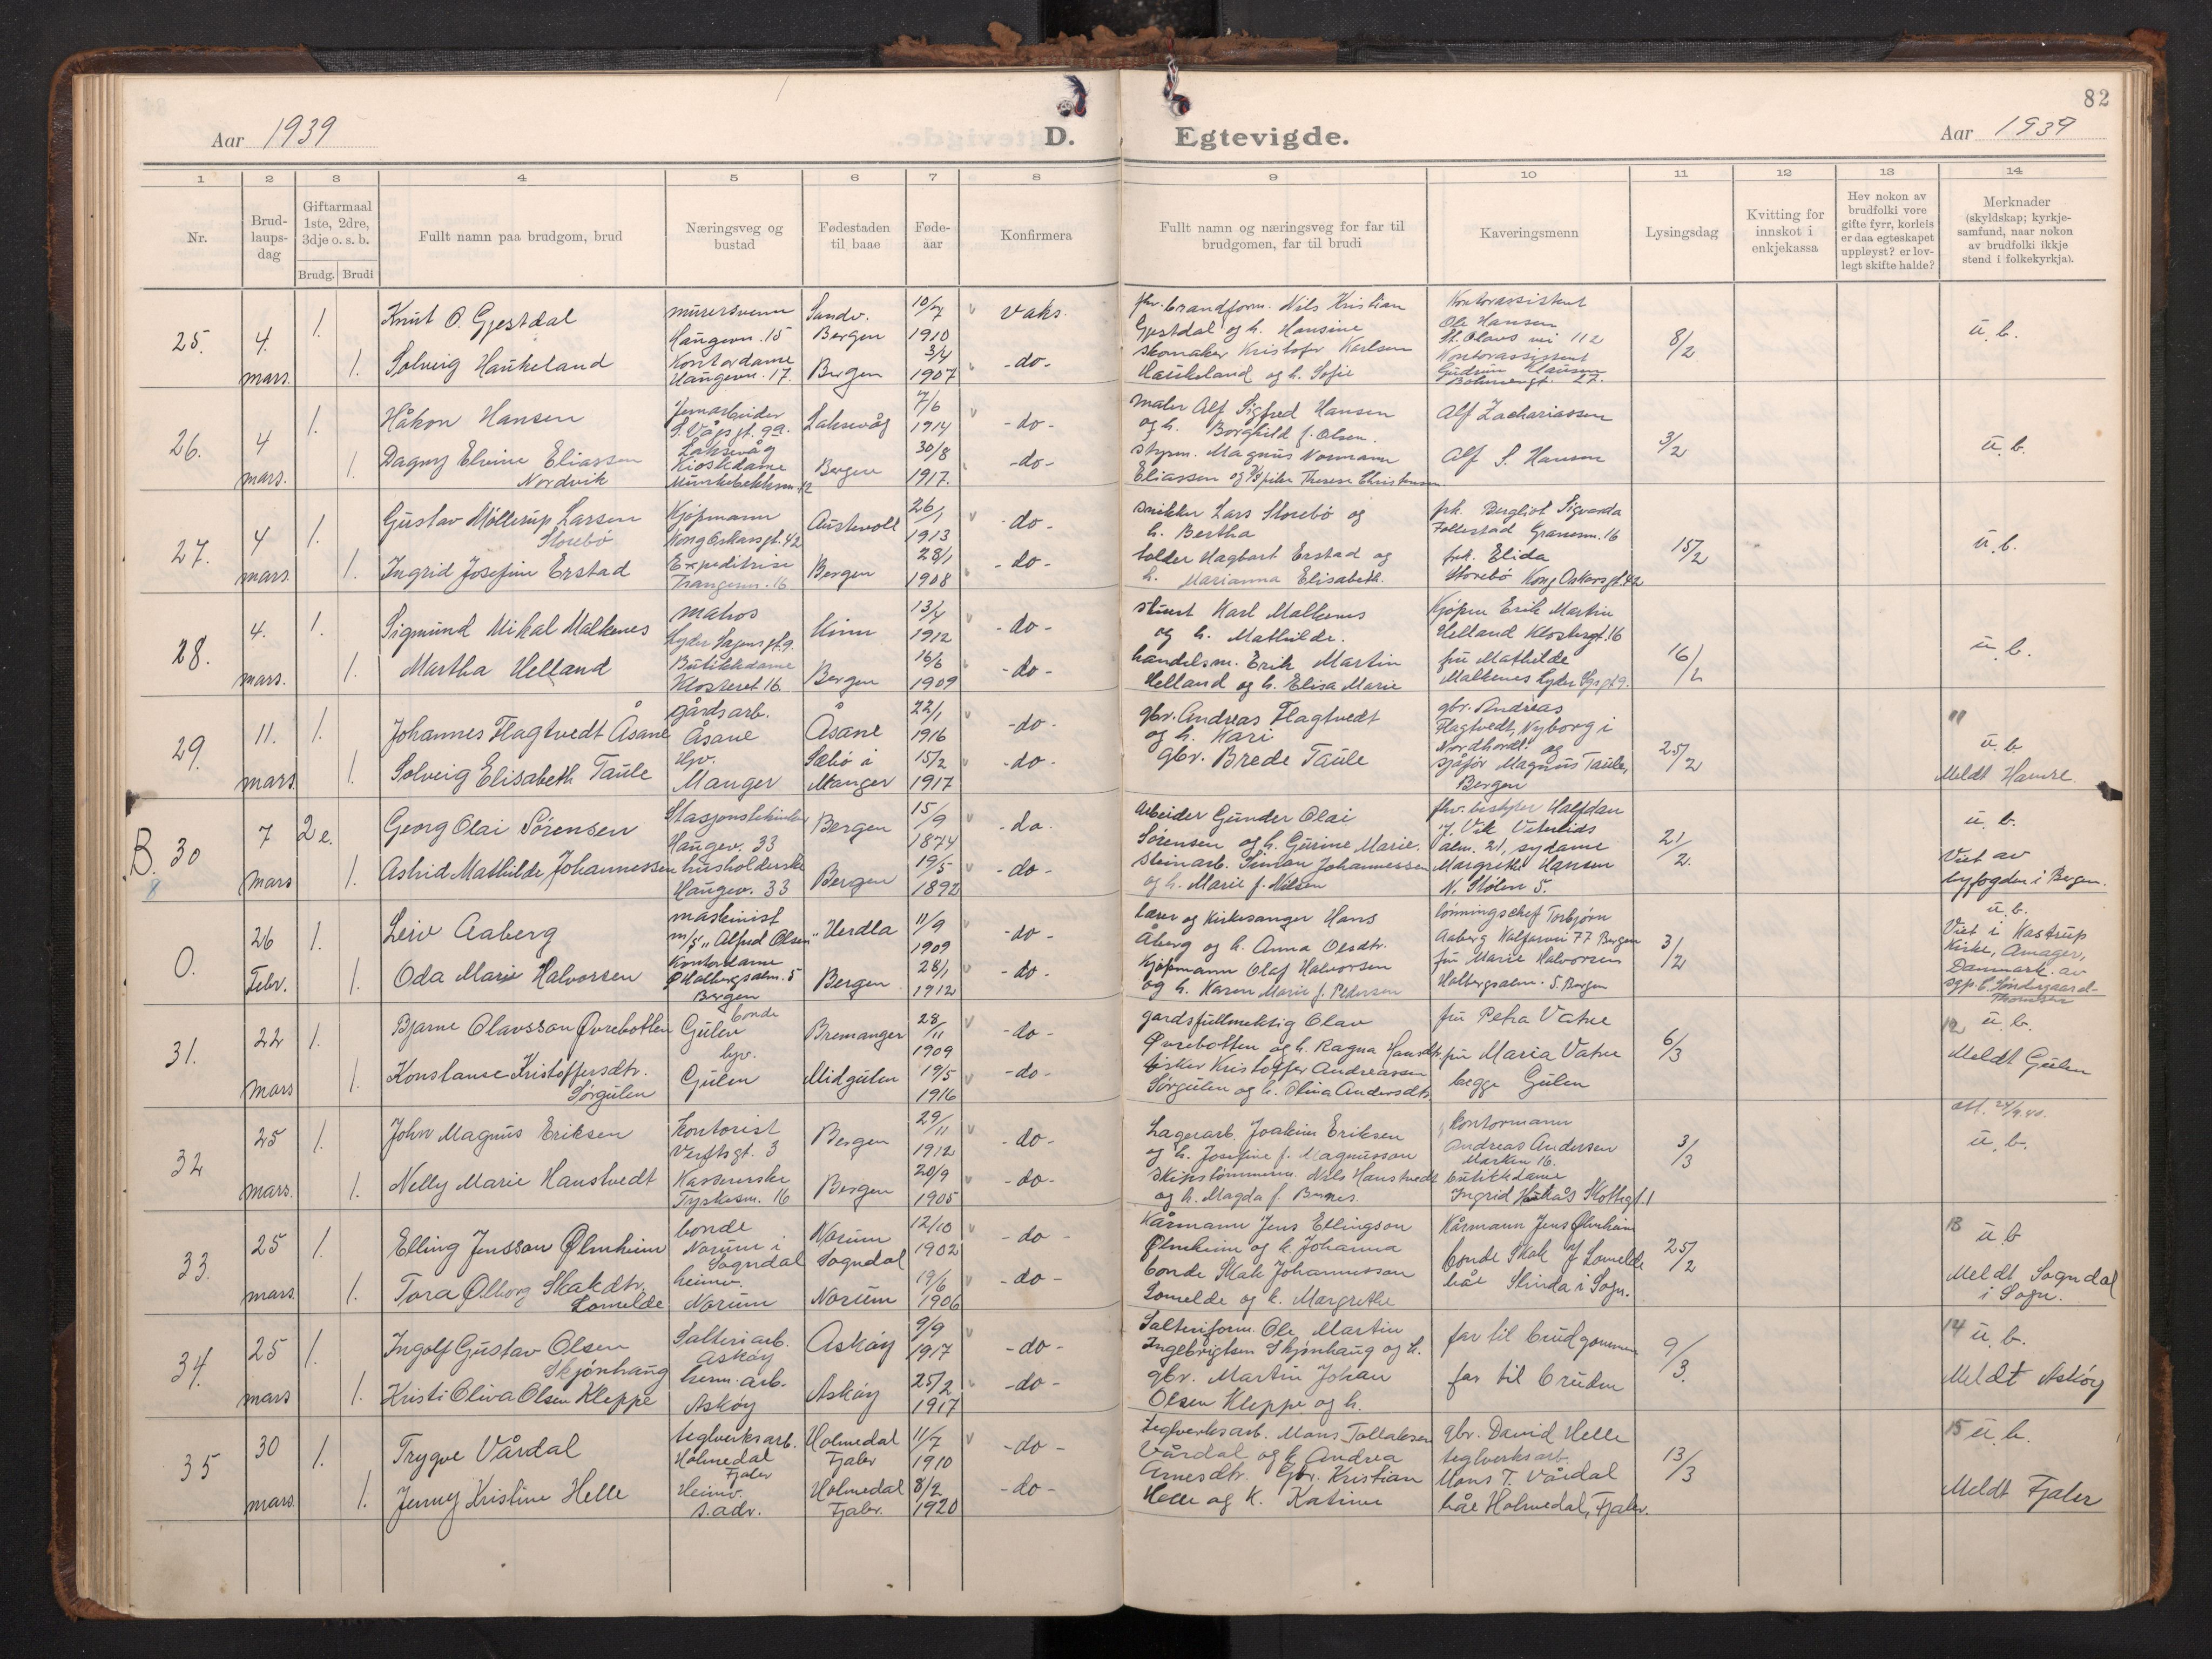 82
Aar 1939
D.
Egtevigde.
Aar 1939
1 2 3 4 5 6 7 8 9 10 11 12 13 14
Nr.
Brud-
laups-
dag
Giftarmaal
1ste, 2dre,
3dje o. s. b.
Brudg. Brudi
Fullt namn paa brudgom, brud
Næringsveg og
bustad
Fødestaden
til baae
Føde-
aar
Konfirmera
Fullt namn og næringsveg for far til
brudgomen, far til brudi
Kaveringsmenn
Lysingsdag
Kvitting for
innskot i
enkjekassa
Hev nokon av
brudfolki vore
gifte fyrr, korleis
er daa egteskapet
uppløyst? er lov-
legt skifte halde?
Merknader
(skyldskap; kyrkje-
samfund, naar nokon
av brudfolki ikkje
stend i folkekyrkja).
25. 4. mars.
1. Knut O. Gjestdal
murersvenn
Haugevn. 15
Sandv.
Bergen
10/7
1910
vaks.
1. Solveig Haukeland
Kontordame
Haugevn. 17.
Bergen
3/4
1907
-do-
fhv. brandform. Nils Kristian
Gjestdal og h. Hansine
skomaker Kristofer Karlsen
Haukeland og h. Sofie
Kontorassistent
Ole Hansen
St. Olavs vei 112
Kontorassistent
Gudrun Klausen
8/2
u. b.
26. 4 mars.
1. Håkon Hansen
Jernarbeider
S. Vågsgt. 9a.
Laksevåg
Laksevåg
7/6
1914
-do-
1. Dagny Elvine Eliassen
Nordvik
Kioskdame
Bergen
30/8
1917.
-do-
maler Alf Sigfred Hansen
og h. Borghild f. Olsen.
styrm. Magnus Normann
Eliassen og Therese Christensen
Alf Zachariassen
Alf S. Hansen
3/2
u. b.
27. 4 mars.
1. Gustav Møllerup Larsen
Storebø
Kjøpmann
Kong Oskarsgt. 42
Austevoll
26/1
1913
-do-
1. Ingrid Josefine Erstad
Expeditrise
Trangesm. 16
Bergen
28/1
1908
-do-
snikker Lars Storebø og
h. Bertha
toller Hagbart Erstad og
h. Marianna Elisabeth.
frk. Bergliot Sigvarda
Follestad 16
frk. Elida
Storebø Kong Oskarsgt. 42
15/2
u. b.
28. 4. mars.
1. Sigmund Mikal Malkenes
matros
Lyder Sagensgt. 9.
Kinn
13/4
1912
-do-
1. Martha Helland
Butikkdame
Klosteret 16.
Bergen
16/6
1909
-do-
Karl Malkenes
og h. Mathilde.
handelsm. Erik Martin
Helland og h. Elisa Marie
Kjøpm Erik Martin
Helland Klostergt. 16
fru Mathilde
Malkenes Lyder Sgsgt 9.
16/2
u. b.
29. 11. mars
1. Johannes Flagtvedt Åsane
gårdsarb.
Åsane
Åsane
22/1
1916
-do-
1. Solveig Elisabeth Taule
Hjv.
Manger
Sæbø i
Manger
15/2
1917
-do-
gbr. Andreas Flagtvedt
og h. Kari
gbr. Brede Taule
gbr. Andreas
Flagtvedt, Nyborg i
Nordhordl. og
sjåfør Magnus Taule,
Bergen
25/2
11
u. b
Meldt Hamre.
B. 30 7 Mars
2 e. Georg Olai Sørensen
Haugev. 33
Bergen
15/9
1874
-do.
1. Astrid Mathilde Johannessen
husholderske
Haugev. 33
Bergen
19/5
1892
-do-
Arbeider Gunder Olai
Sørensen og h. Gurine Marie.
Steinarb. Simon Johannessen
og h. Marie f. Nilsen
fhv. bestyrer Halfdan
J. Vik Veterlids
alm. 21, sydame
Margrethe Hansen
N. Stølen 5.
21/2.
u. b.
Viet av
byfogden i Bergen.
0. 26 Febr.
1. Leiv Aaberg
maskinist
m/s "Alfred Olsen"
Herdla
11/9
1909
-do-
1. Oda Marie Halvorsen
Kontordame
Holbergsalm. 5
Bergen
Bergen
28/1
1912
-do-
Lærer og Kirkesanger Hans
Åberg og h. Anna Olsdtr.
Kjøpmann Olaf Halvorsen
og h. Karen Marie f. Pedersen
lønningschef Torbjørn
Aaberg Kalfarvei 77 Bergen
fru Marie Halvorsen
Holbergsalm. 5. Bergen
3/2
u. b.
Viet i Kastrup
Kirke, Amager,
Danmark. av
sgp. C. Søndergaard-
Thomsen
31. 22 Mars
1. Bjarne Olavsson Øvrebotten
bonde
Gulen
Bremanger
28/11
1909
-do-
1. Konstanse Kristoffersdtr.
Sørgulen
hjv.
Gulen
Midgulen
19/5
1916
-do-
gardsfullmektig Olav
Øvrebotten og h. Ragna Hansdtr.
fisker Kristoffer Andreassen
Sørgulen og h. Stina Andersdtr
fru Petra Vatne
fru Maria Vatne
begge Gulen
6/3
12 u. b.
Meldt Gulen
32 25 mars.
1. John Magnus Eriksen
Kontorist
Verftsgt. 3
Bergen
29/11
1912
-do-
1. Nelly Marie Hanstvedt
Kassererske
Tryskesm. 16
Bergen
20/9
1905
-do-
Lagerarb. Joakim Eriksen
og h. Josefine f. Magnusson
Skipstømmerm. Nils Hanstvedt
og h. Magda f. Bernes.
Kontormann
Andreas Andersen
Marken 16.
butikkdame
Ingrid Skottegt. 1
3/3
att. 24/9.40.
u. b.
33. 25 mars.
1. Elling Jensson Ølmheim
bonde
Norum i
Sogndal
Norum
Sogndal
12/10
1902
-do-
1. Tora Ølborg Skakdtr.
Lomelde
heimv.
Norum
Norum
19/6
1906
-do-
Kårmann Jens Ellingson
Ølmheim og k. Johanna
bonde Skak Johannesson
Lomelde og k. Margrethe
Kårmann Jens Ølmheim
bonde Skak J. Lomelde
båe Slinda i Sogn.
25/2
13 u. b
Meldt Sogndal
i Sogn.
34. 25 mars
1. Ingolf Gustav Olsen
Skjønhaug
Salteriarb.
Askøy
Askøy
9/9
1917
-do-
1. Kristi Oliva Olsen Kleppe
herm. arb.
Askøy
Askøy
25/2
1917
-do-
Salteriform. Ole Martin
Ingebrigtsen Skjønhaug og h.
gbr. Martin Johan
Olsen Kleppe og h.
far til brudgommen
far til bruden
9/3.
14 u. b.
Meldt Askøy
35 30 mars.
1. Trygve Vårdal
teglverksarb.
Holmedal
Fjaler
Holmedal
Fjaler
11/7
1910
-do-
1. Jenny Kristine Helle
Heimv.
s. adr.
Holmedal
Fjaler.
8/2
1920
-do-
teglverksarb. Mons Tollaksen
Vårdal og k Andrea
Arnesdtr. Gbr. Kristian
Helle og k. Katine
gbr. David Helle
teglverksarb.
Mons T. Vårdal
båe Holmedal, Fjaler.
13/3
15 u. b.
Meldt Fjaler